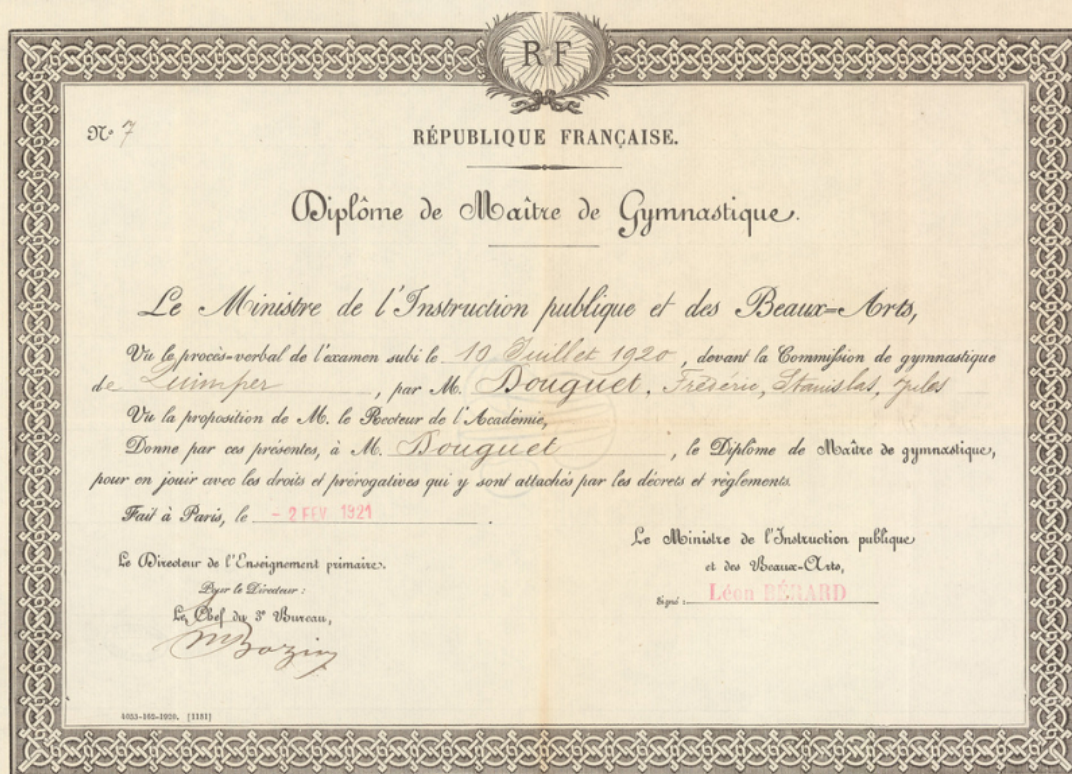 RF
N° 7
RÉPUBLIQUE FRANÇAISE.
Diplôme de Maître de Gymnastique.
Le Ministre de l'Instruction publique et des Beaux=Arts,
Vu le procès-verbal de l'examen subi le 10 Juillet 1920, devant la Commission de gymnastique
de Quimper, par M. Douguet, Frédéric, Stanislas, Jules
Vu la proposition de M. le Recteur de l'Académie,
Donne par ces présentes, à M. Douguet, le Diplôme de Maître de gymnastique,
pour en jouir avec les droits et prérogatives qui y sont attachés par les décrets et règlements.
Fait à Paris, le - 2 FEV 1921.
Le Ministre de l'Instruction publique
et des Beaux-Arts,
Signé : Léon BÉRARD
Le Directeur de l'Enseignement primaire.
Pour le Directeur :
Le Chef du 3e Bureau,
4033-163-1920. [1181]